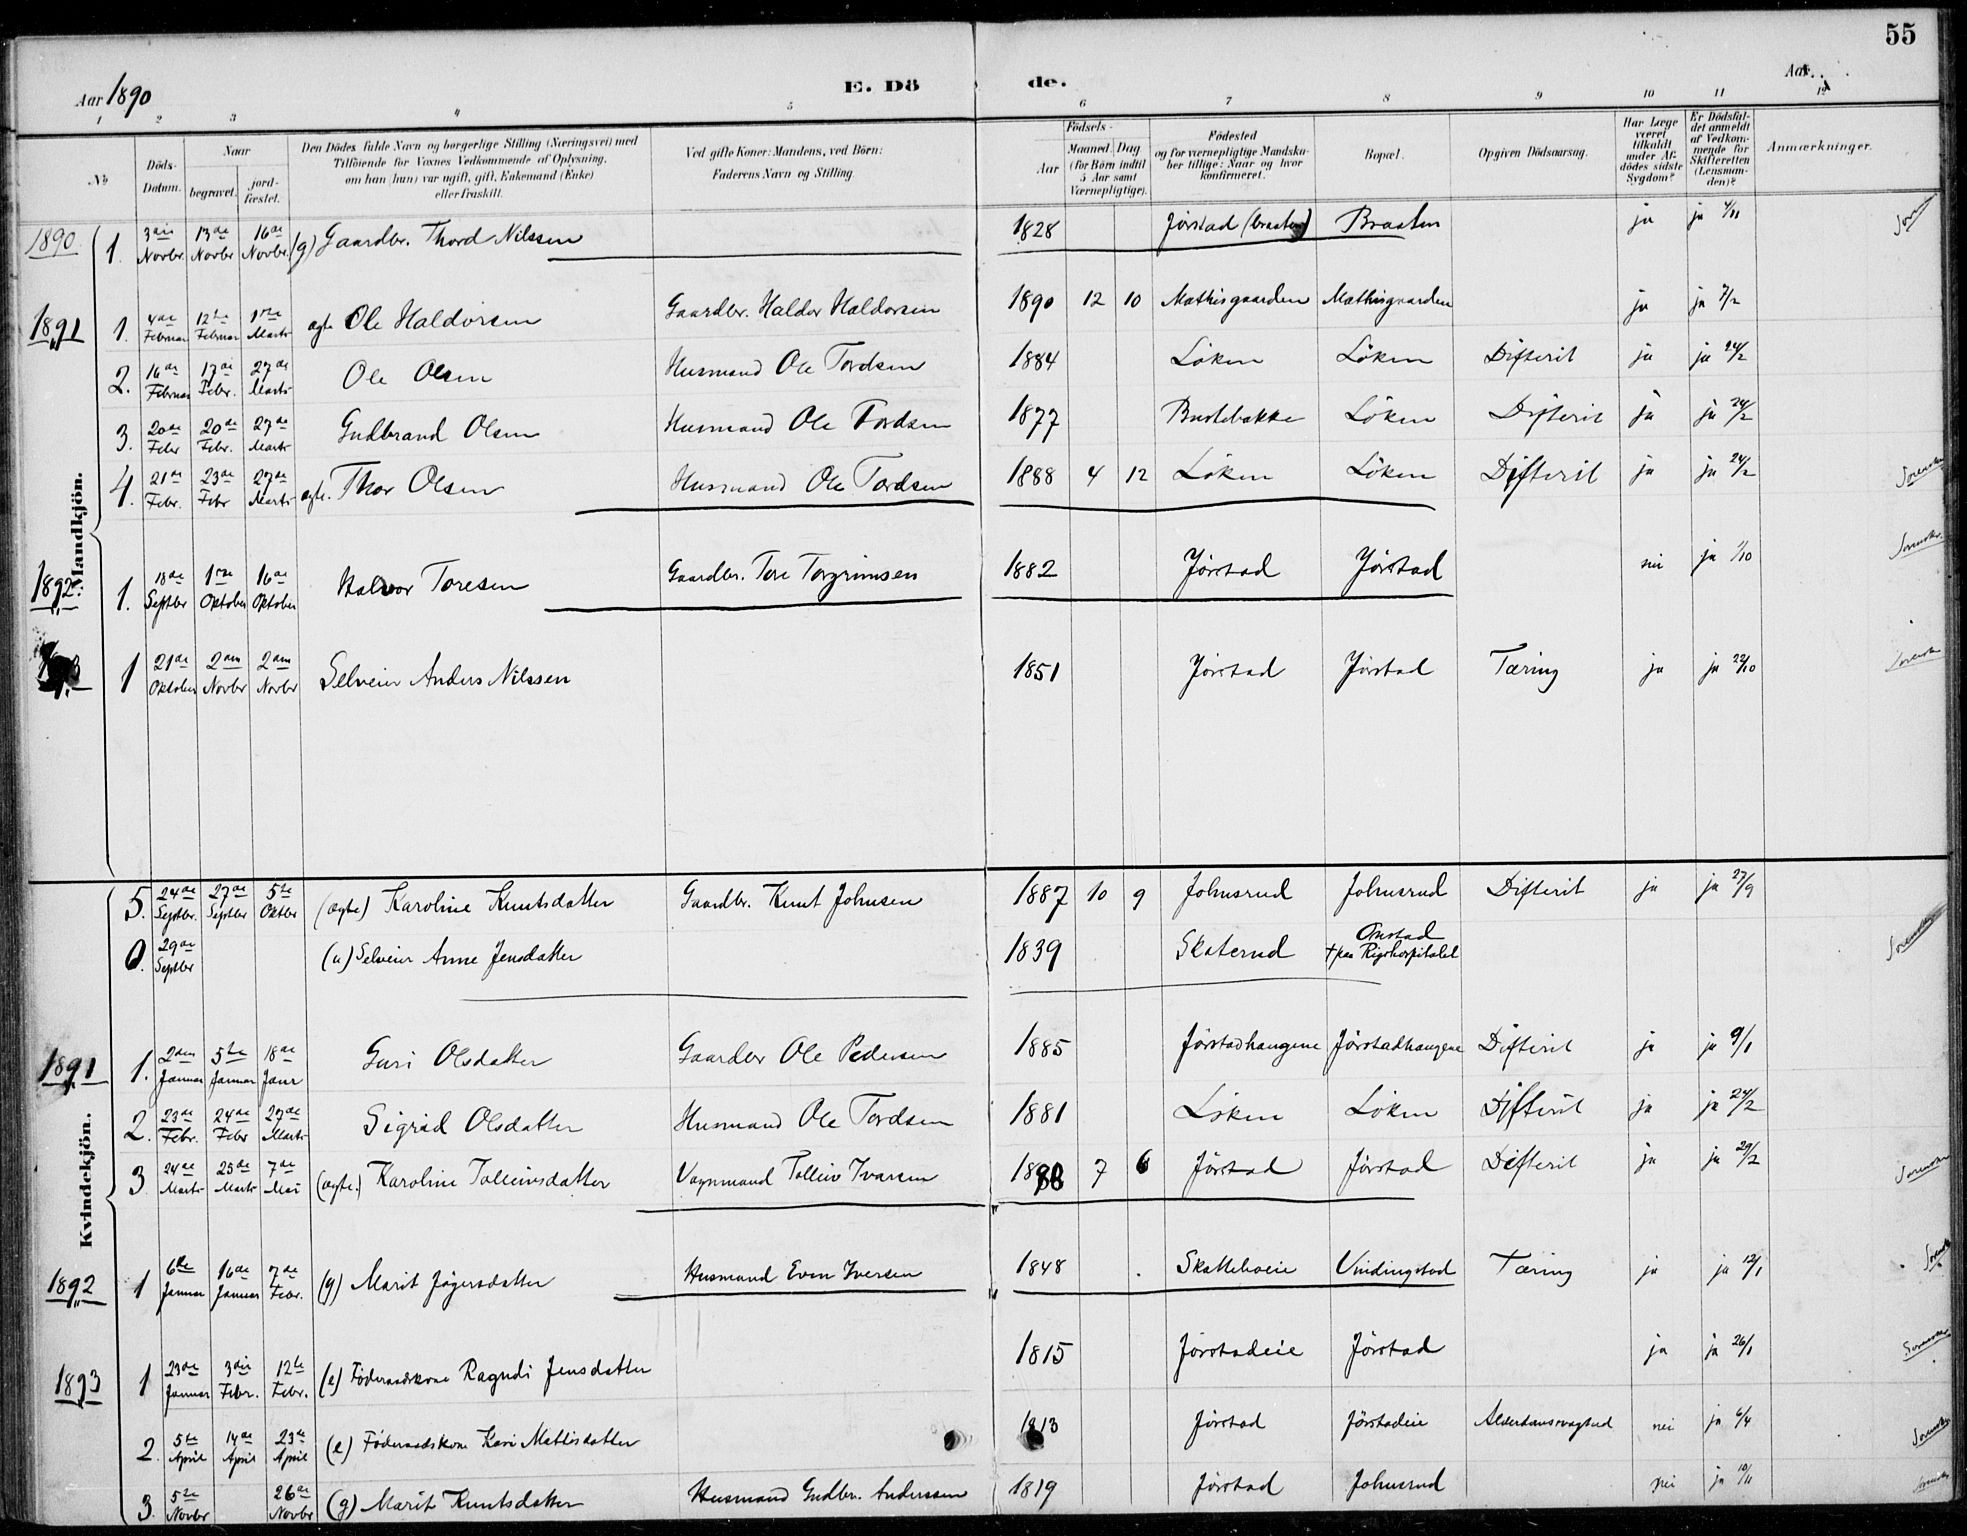 55
Aar 1890 E. Dö de. Aar
1 2 3 4 5 6 7 8 9 10 11 12
No Döds-Datum. Naar begravet. jord-fæstet. Den Dödes fulde Navn og borgerlige Stilling (Næringsvei) med Tilföiende for Voxnes Vedkommende af Oplysning, om han (hun) var ugift, gift, Enkemand (Enke) eller fraskilt. Ved gifte Koner: Mandens, ved Börn: Faderens Navn og Stilling. Födsels- Aar Maaned. Dag (for Börn indtil 5 Aar samt Værnepligtige). Födested og for værnepligtige Mandska-ber tillige: Naar og hvor konfirmeret. Bopæl. Opgiven Dödsaarsag. Har Læge været tilkaldt under Af-dödes sidste Sygdom? Er Dödsfal-det anmeldt af Vedkom-mende for Skifteretten (Lensman-den)? Anmærkninger.
Mandkjön.
1890 1. 3die Novbr. 13de Novbr 16de Novbr. (g) Gaardbr. Thord Nilssen 1828 Jørstad (braaten) Braaten ja ja 4/11
1891 1. 4de Februar 12te Februar 1ste Marts ægte Ole Haldorsen Gaardbr. Haldor Haldorsen 1890 12 10 Mathisgaarden Mathisgaarden ja ja 7/2
2. 16de Februar 17de Febr. 27de Marts Ole Olsen Husmand Ole Tordsen 1884 Löken Löken Difterit ja ja 24/2
3. 20de Febr 20de Febr. 27de Marts Gudbrand Olsen Husmand Ole Tordsen 1877 Bustebakke Löken Difterit ja ja 24/2
4. 21de Febr. 23de Febr 27de Marts ægte. Thor Olsen Husmand Ole Tordsen 1888 4 12 Löken Löken Difterit ja ja 24/2
1892. 1. 18de Septbr 1ste Oktober 16de Oktober Halvor Toresen Gaardbr. Tore Torgrimsen 1882 Jörstad Jörstad nei ja 1/10
1 21de Oktober 2den Novbr 2den Novbr Selveier Anders Nilssen 1851 Jörstad Jörstad Tæring ja ja 22/10
Kvindekjön.
5. 24de Septbr. 27de Septbr 5te Oktbr (ægte) Karoline Knutsdatter Gaardbr. Knut Johnsen 1887 10 9 Johnsrud Johnsrud Difterit ja ja 27/9
0. 29de Septbr (u) Selveier Anne Jensdatter 1839 Skaterud Onstad + paa Rigshospitalet
1891 1. 2den Januar 5te Januar 18de Janr Guri Olsdatter Gaardbr Ole Pedersen 1885 Jörstadhaugene Jörstadhaugene Difterit ja ja 9/1
2. 23de Febr. 24de Febr 27de Marts Sigrid Olsdatter Husmand Ole Tordsen 1881 Löken Löken Difterit ja ja 24/2
3 24de Marts 25de Marts 7de Mai (ægte.) Karoline Tolleivsdatter Vognmand Tolleiv Ivarsen 7 6 Jörstad Jörstad Difterit ja ja
1892 1 6te Januar 16de Januar 7de Febr. (g) Marit Jögersdatter Husmand Even Iversen 1848 Skatteboeie Vindingstad Tæring ja ja 12/1
1893 1 23de Januar 3die Febr. 12te Febr. (e) Föderaadskone Ragndi Jensdatter 1815 Jörstadeie Jörstad ja ja 26/1
2. 5te April 14de April 23de April (e) Föderaadskone Kari Mathisdatter 1813 Jörstad Jörstadeie Alderdomssvaghed nei ja 6/4
3. 5te Novbr 26de Novbr (g) Marit Knutsdatter Husmand Gudbr. Anderssen 1819 Jörstad Johnsrud nei ja 10/11